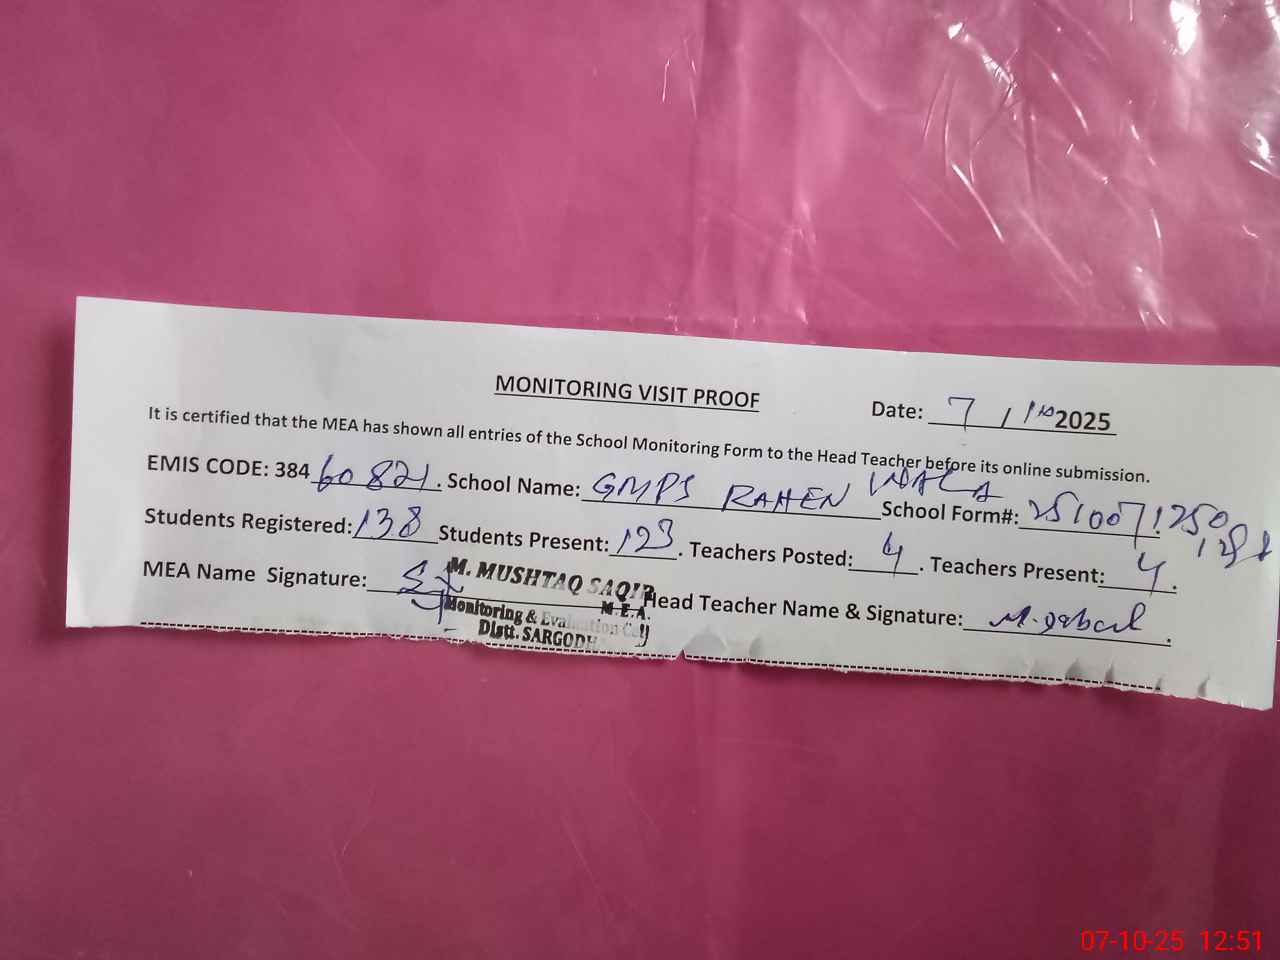 MONITORING VISIT PROOF
Date: 7 / 10 2025
It is certified that the MEA has shown all entries of the School Monitoring Form to the Head Teacher before its online submission.
EMIS CODE: 384 60821. School Name: GMPS RAHEN WALA School Form#: 2510071250
Students Registered: 138 Students Present: 123. Teachers Posted: 4. Teachers Present: 4.
MEA Name Signature: Head Teacher Name & Signature:
M. MUSHTAQ SAQIB
M E A.
Monitoring & Evaluation Cell
Distt. SARGODHA
07-10-25 12:51